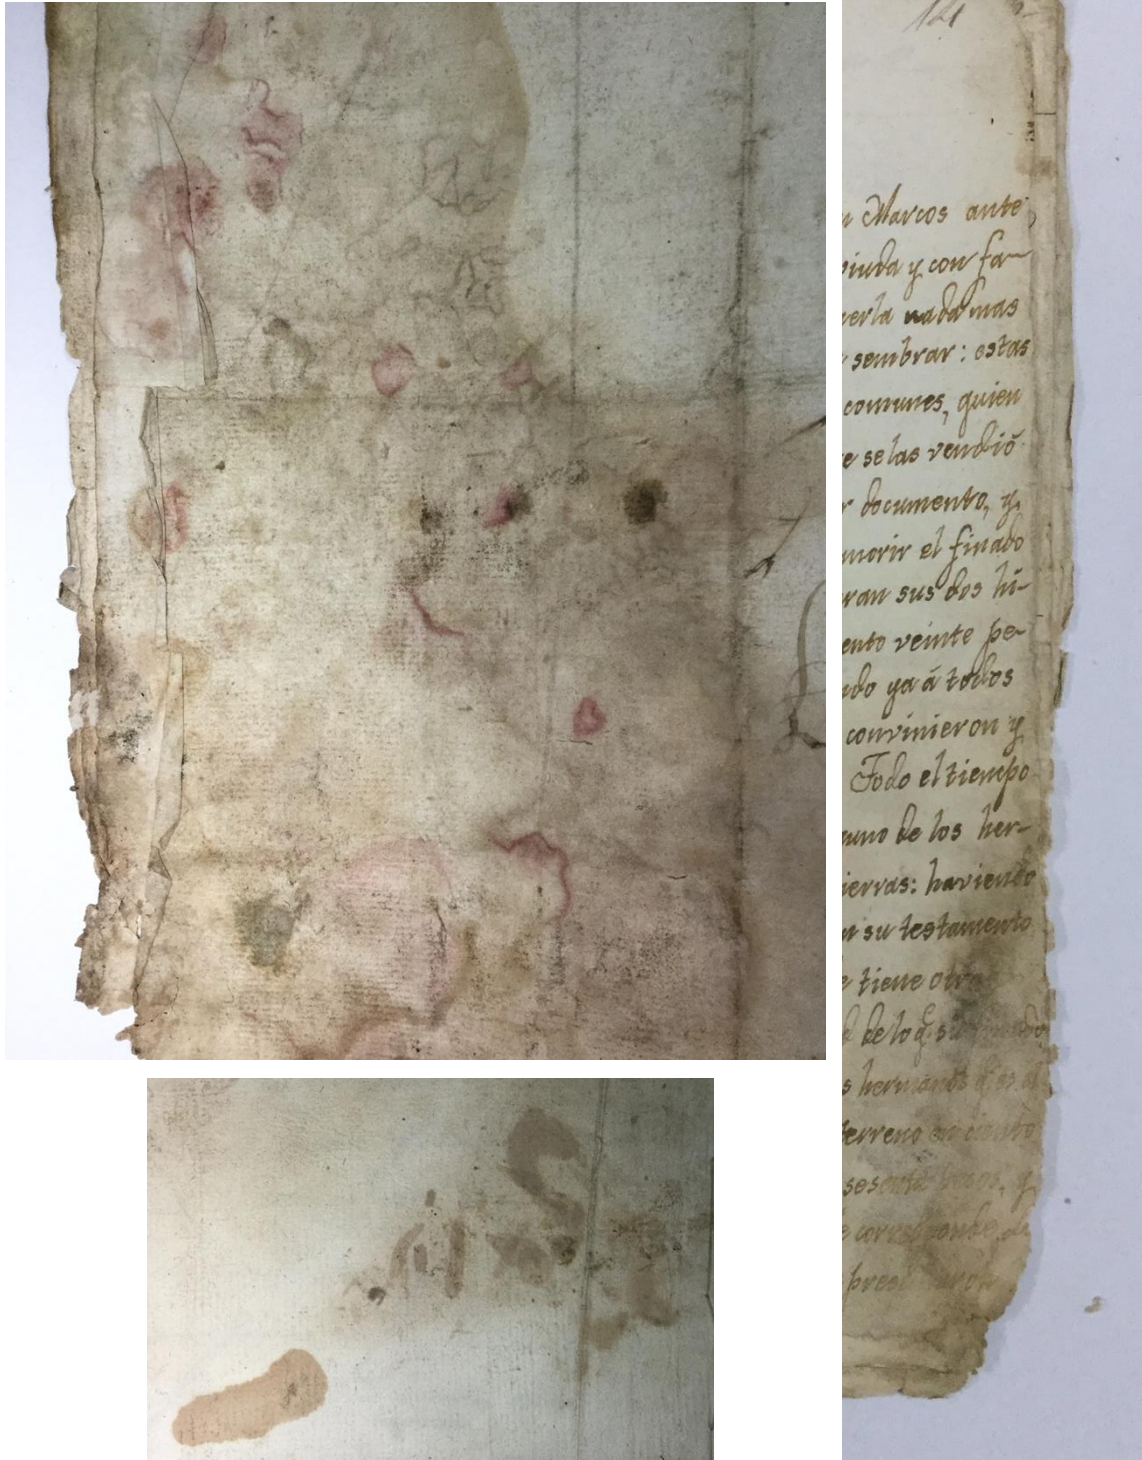 121
Marcos ante
viuda y con fa-
verla nada mas
sembrar: estas
comunes, quien
e se las vendió
r documento, y
morir el finado
ran sus dos hi-
ento veinte pe-
ndo ya á todos
convinieron y
Todo el tiempo
uno de los her-
ierras: haviendo
su testamento
e tiene otra
de lo q. su
s hermanos q. es el
terreno en ciento
sesenta pesos, y
e corresponde de